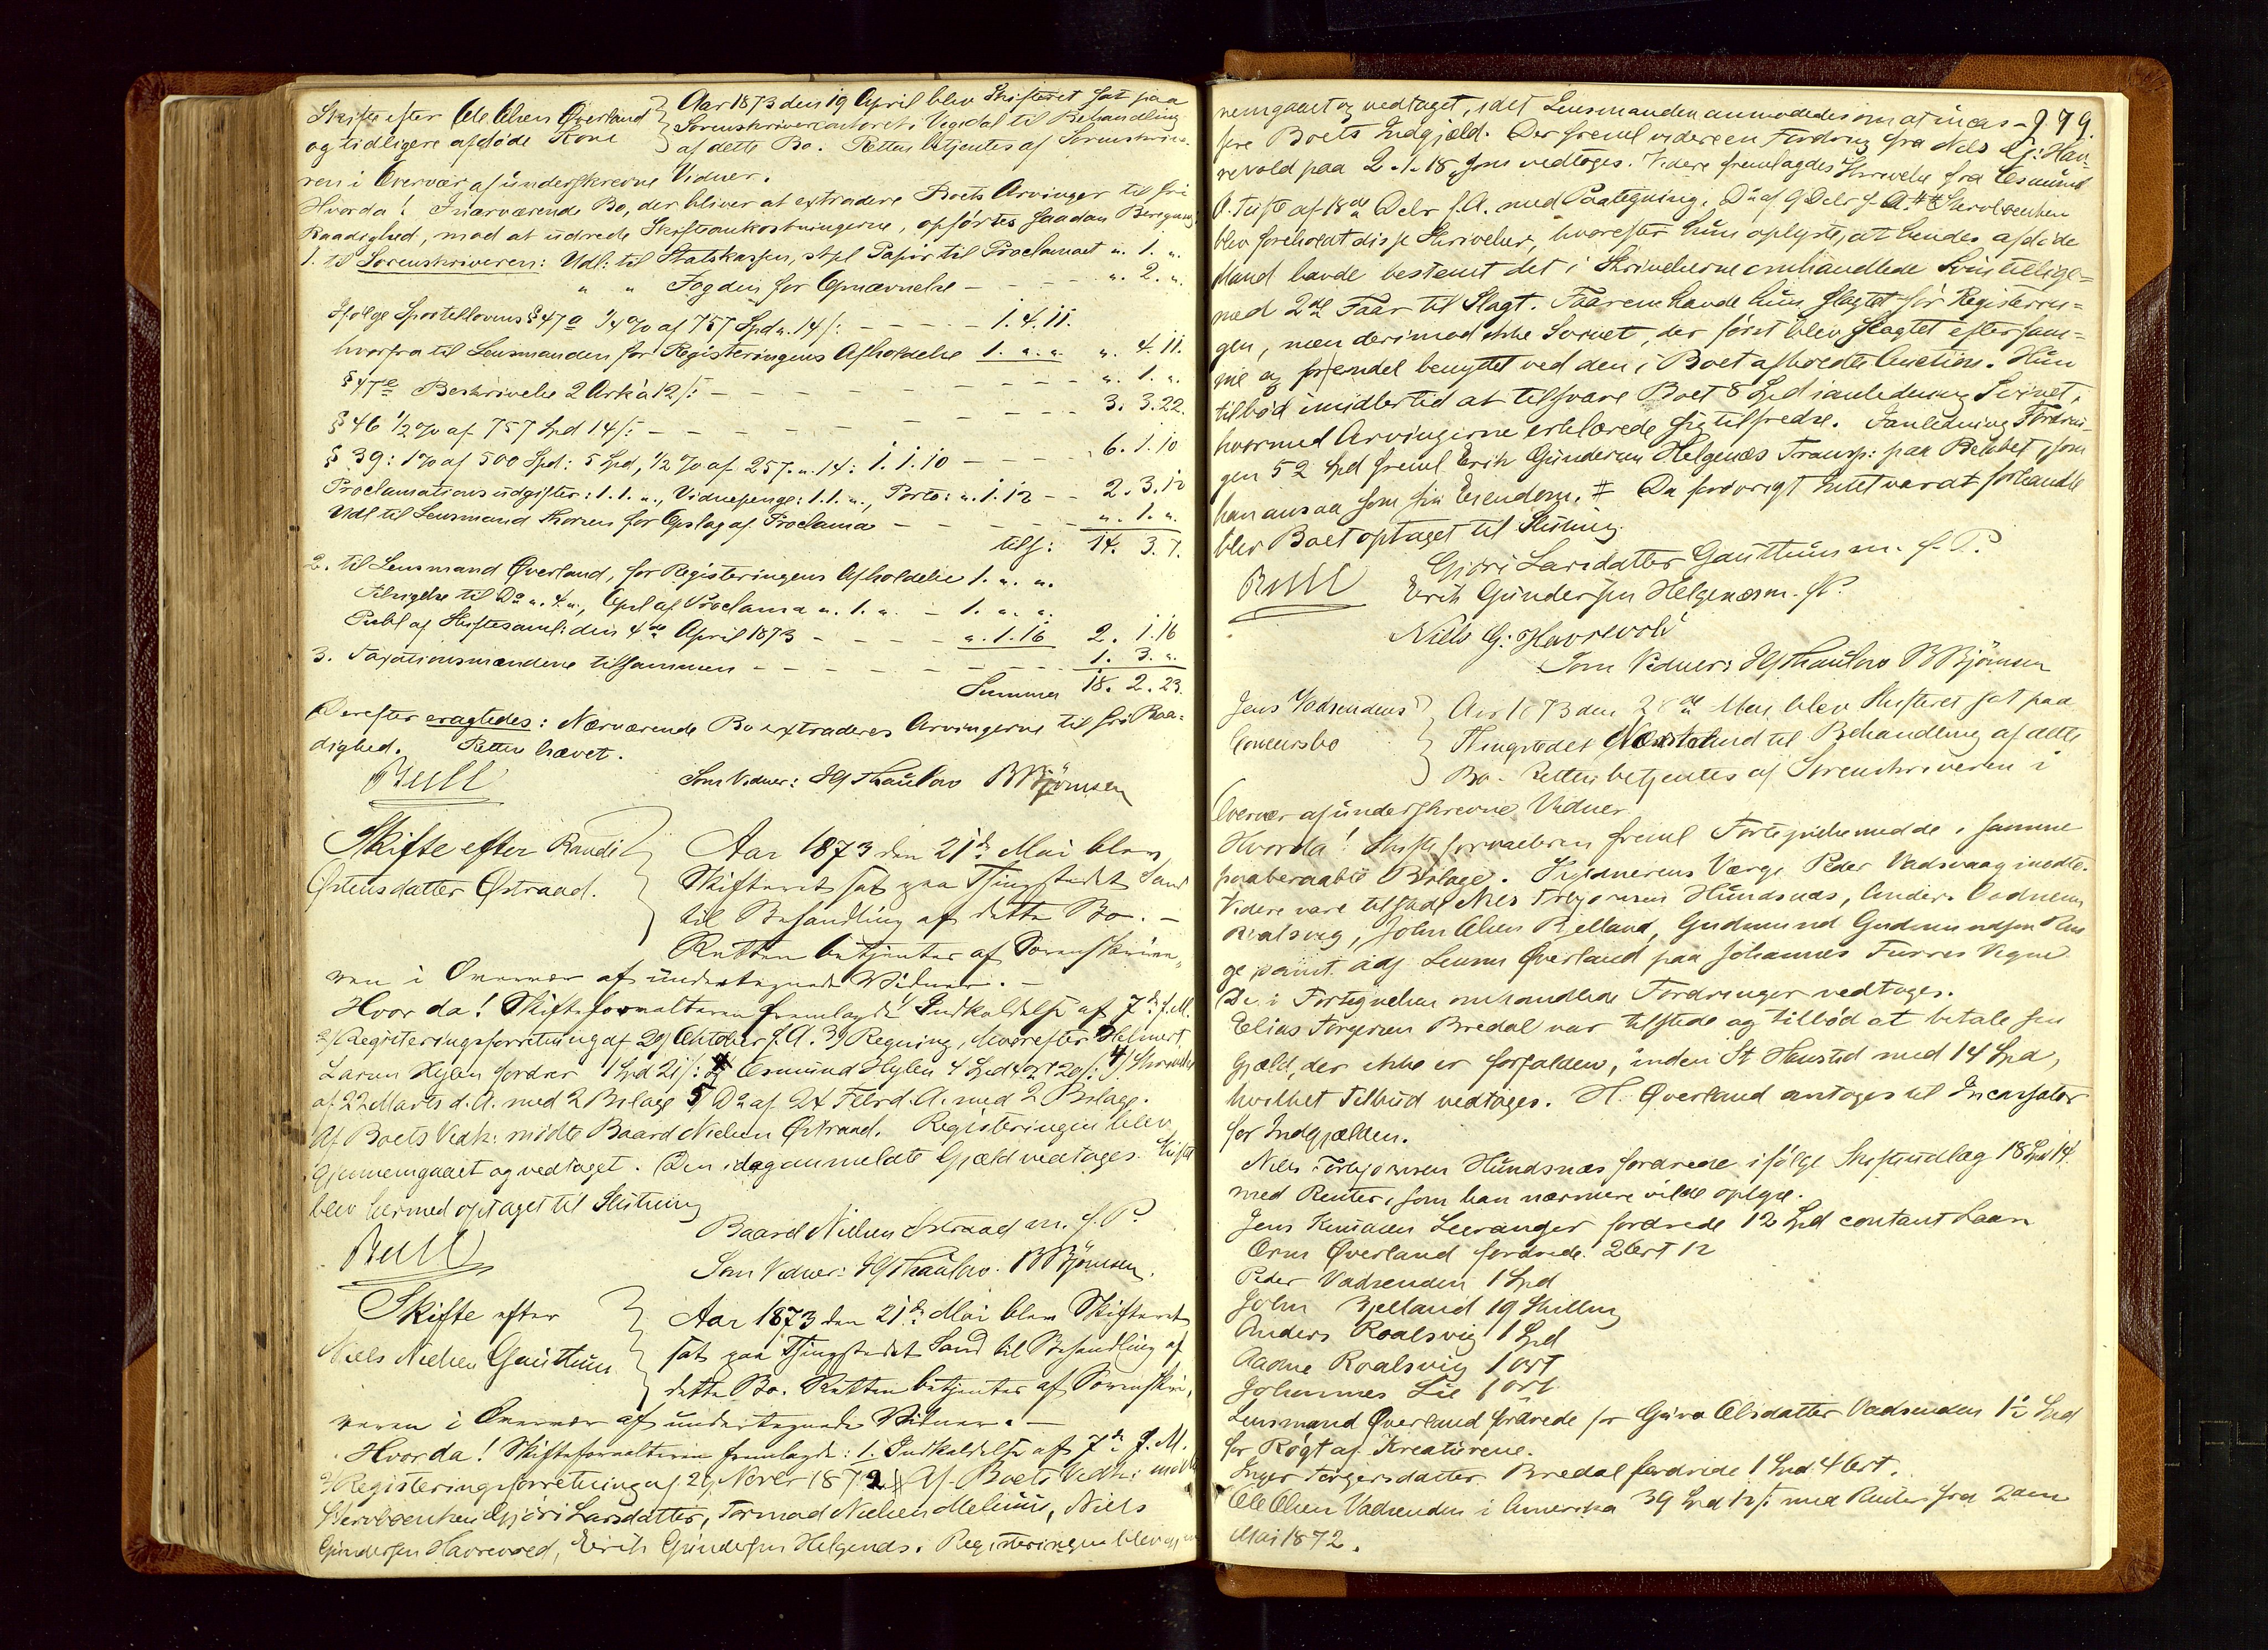 Skifte efter Ole Olsen Øverland
og tidligere afdøde Kone
Aar 1873 den 19 April blev Skifteret sat paa
Sorenskrivercontoret i Vigedal til Behandling
af dette Bo. Retten betjentes af Sorenskrive-
ren i Overvær af underskrevne Vidner.
Hvorda! I nærværende Bo, der bliver at extradere Boets Arvinger til fri
Raadighed, mod at udrede Skifteomkostningerne, opførtes saadan Beregning
1. til Sorenskriveren: Udl: til Statskassen, stpl Papir til Proclamaet „. 1. „.
„ „ Fogden for Opnævnelse - - - - „. 2. „.
Ifølge Sportellovens § 47a 1/4 % af 757 Spd „. 14 ß: - - - - 1. 4. 11.
hvorfra til Lensmanden for Registeringens Afholdelse 1. „. „. „. 4. 11.
§ 47e Beskrivelse 2 Ark à 12 ß: - - - - - - - „. 1. „.
§ 46 1/2 % af 757 Spd 14 ß: - - - - - - 3. 3. 22.
§ 39: 1 % af 500 Spd: 5 Spd, 1/2 % af 257. „. 14: 1. 1. 10 - - 6. 1. 10
Proclamationsudgifter: 1. 1. „., Vidnepenge: 1. 1. „., Porto: „. 1. 12 - - 2. 3. 12
Udl til Lensmand Thorsen for Opslag af Proclama - - - - - „. 1. „.
tils: 14. 3. 7.
2. til Lensmand Øverland, for Registeringens Afholdelse 1. „. „.
Tilsigelse til Do „. 4. „., Opsl af Proclama „. 1. „. - 1. „. „.
Publ af Skiftesaml: den 4de April 1873 - - - - „. 1. 16 2. 1. 16
3. Taxationsmændene tilsammen - - - - - - - 1. 3. „.
Summa 18. 2. 23.
Derefter eragtedes: Nærværende Bo extraderes Arvingerne til fri Raa-
dighed. Retten hævet.
Bull Som Vidner: HJThaulow BBjörnsen
Skifte efter Randi
Østensdatter Østraad.
Aar 1873 den 21de Mai blev
Skifteret sat paa Thingstedet Sand
til Behandling af dette Bo. -
Retten betjentes af Sorenskrive-
ren i Overvær af undertegnede Vidner. -
Hvor da! Skifteforvalteren fremlagde 1) Indkaldelse af 7de f. M.
2) Registeringsforretning af 29 Oktober f. A. 3) Regning, hvorefter Helmert
Larsen Hylen fordrer 1 Spd 21 ß: og Osmund Hylen 4 Spd 4 ort 20 ß: 4) Skrivelse
af 22 Marts d. A. med 2 Bilage 5) Do af 24 Febr d. A. med 2 Bilage.
Af Boets Vedk: mødte Baard Nielsen Østraad. Registeringen blev
gjennemgaaet og vedtaget. Den idag anmeldte Gjæld vedtages. Skiftet
blev hermed optaget til Slutning
Baard Nielsen Østraad m. f. P.
Bull Som Vidner: HJThaulow. BBjörnsen.
Skifte efter
Niels Nielsen Gauthun
Aar 1873 den 21de Mai blev Skifteret
sat paa Thingstedet Sand til Behandling af
dette Bo. Retten betjentes af Sorenskri-
veren i Overvær af undertegnede Vidner. -
Hvor da! Skifteforvalteren fremlagde: 1. Indkaldelse af 7de f. M.
2) Registeringsforretning af 29 Novbr 1872. Af Boets Vedk: mødte
Stervboenken Gjöri Larsdatter, Tormod Nielsen Melhuus, Niels
Gundersen Havrevold, Erik Gundersen Helgenæs. Registeringen blev gjen-
279.
nemgaaet og vedtaget, idet Lensmanden anmodedes om at incas-
sere Boets Indgjæld. Der freml videre en Fordring fra Nils G: Hav-
revold paa 2. 1. 18 som vedtoges. Videre fremlagdes Skrivelse fra Osmund
O. Tufte af 18de Debr f. A. med Paategning. Do af 9 Debr f. A. Stervboenken
blev foreholdt disse Skrivelser, hvorefter hun oplyste, at hendes afdøde
Mand havde bestemt det i Skrivelserne omhandlede Sviin tillige-
med 2de Faar til Slagt. Faarene havde hun slagtet før Registerin-
gen, men derimod ikke Svinet, der først blev slagtet efter sam-
me og fordel benyttet ved den i Boet afholdte Auction. Hun
tilbød imidlertid at tilsvare Boet 8 Spd i anledning Svinet,
hvormed Arvingerne erklærede sig tilfredse. I anledning Fordrin-
gen 52 Spd freml Erik Gundersen Helgenæs Transp: paa Beløbet, som
han ansaa som sin Eiendom. Da forøvrigt Intet var at forhandle
blev Boet optaget til Slutning.
Gjöri Larsdatter Gauthun m. f. P.
Bull Erik Gundersen Helgenæs m. f. P.
Niels G: Havrevold
Som Vidner: HJThaulow BBjörnsen
Jens Vadsendens
Concursbo
Aar 1873 den 28de Mai blev Skifteret sat paa
Thingstedet Næstland til Behandling af dette
Bo. Retten betjentes af Sorenskriveren i
Overvær af underskrevne Vidner.
Hvorda! Skifteforvalteren freml Fortegnelse med de i samme
paaberaabte Bilage. Skyldnerens Værge Peder Vadsvaag mødte.
Videre vare tilstede Niels Torbjørnsen Hundsnæs, Anders Aadnesen
Roalsvig, John Olsen Bjelland, Gudmund Gudmundsen
samt. adj Lensm Øverland paa Johannes Furres Vegne
De i Fortegnelsen omhandlede Fordringer vedtoges.
Elias Torgersen Bredal var tilstede og tilbød at betale sin
Gjæld, der ikke er forfalden, inden St Hanstid med 14 Spd,
hvilket Tilbud vedtoges. H. Øverland antoges til Incassator
for Indgjælden.
Niels Torbjørnsen Hundsnæs fordrede ifølge Skifteudlæg 18 Spd 14
med Renter, som han nærmere vilde oplyse.
Jens Knudsen Leeranger fordrede 12 Spd contant Laan
Orm Øverland fordrede 2 Ort 12
Peder Vadsenden 1 Spd
John Bjelland 19 Skilling
Anders Roalsvig 1 Spd
Aadne Roalsvig 1 ort
Johannes Lie 1 ort
Lensmand Øverland fordrede for Guro Olsdatter Vadsenden 1½ Spd
for Røgt af Kreaturene.
Inger Torgersdatter Bredal fordrede 1 Spd 4 Ort.
Ole Olsen Vadsenden i Amerika 39 Spd 12 ß med Renter fra 2den
Mai 1872.